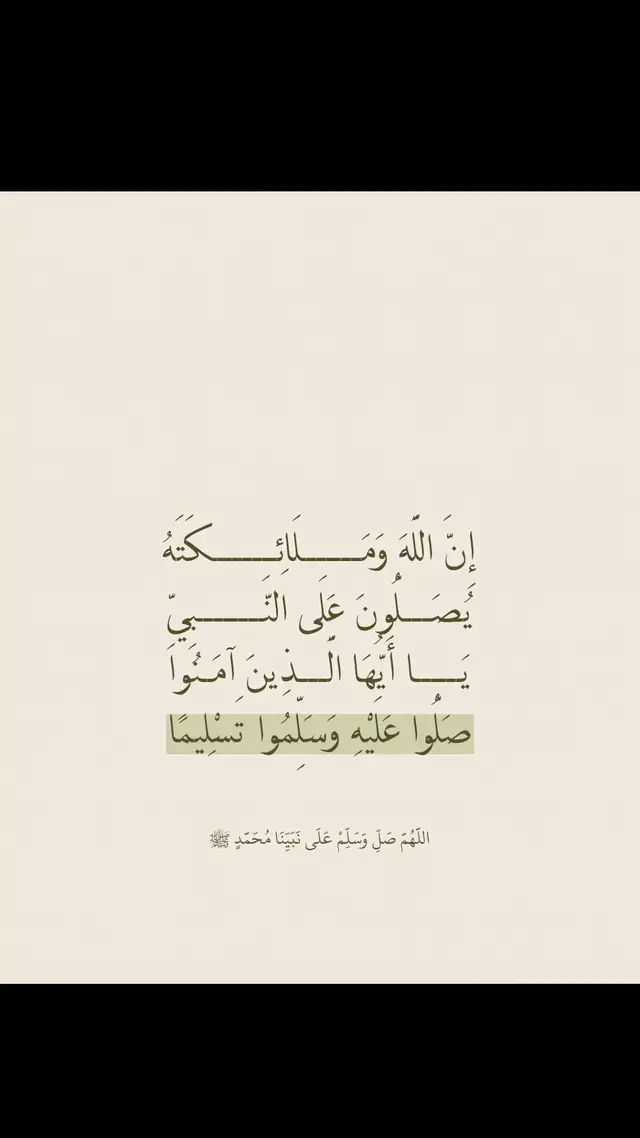 إِنَّ اللَّهَ وَمَـــــلَائِـــــكَتَهُ
يُصَـــلُّونَ عَلَى النَّـــــبِيِّ
يَـــا أَيُّهَا الَّـــذِينَ آمَنُوا
صَلُّوا عَلَيْهِ وَسَلِّمُوا تَسْلِيمًا
اللَّهُمَّ صَلِّ وَسَلِّمْ عَلَى نَبَيِّنَا مُحَمَّدٍ ﷺ